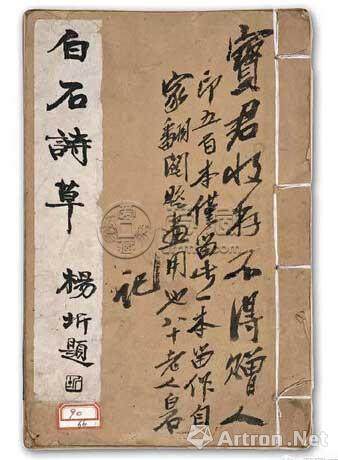 寶君收存不得贈人
印五百本僅留此一本留作自
家翻閱題畫用也八十老人白石
記
白石詩草
楊圻題
90
Artron.Net